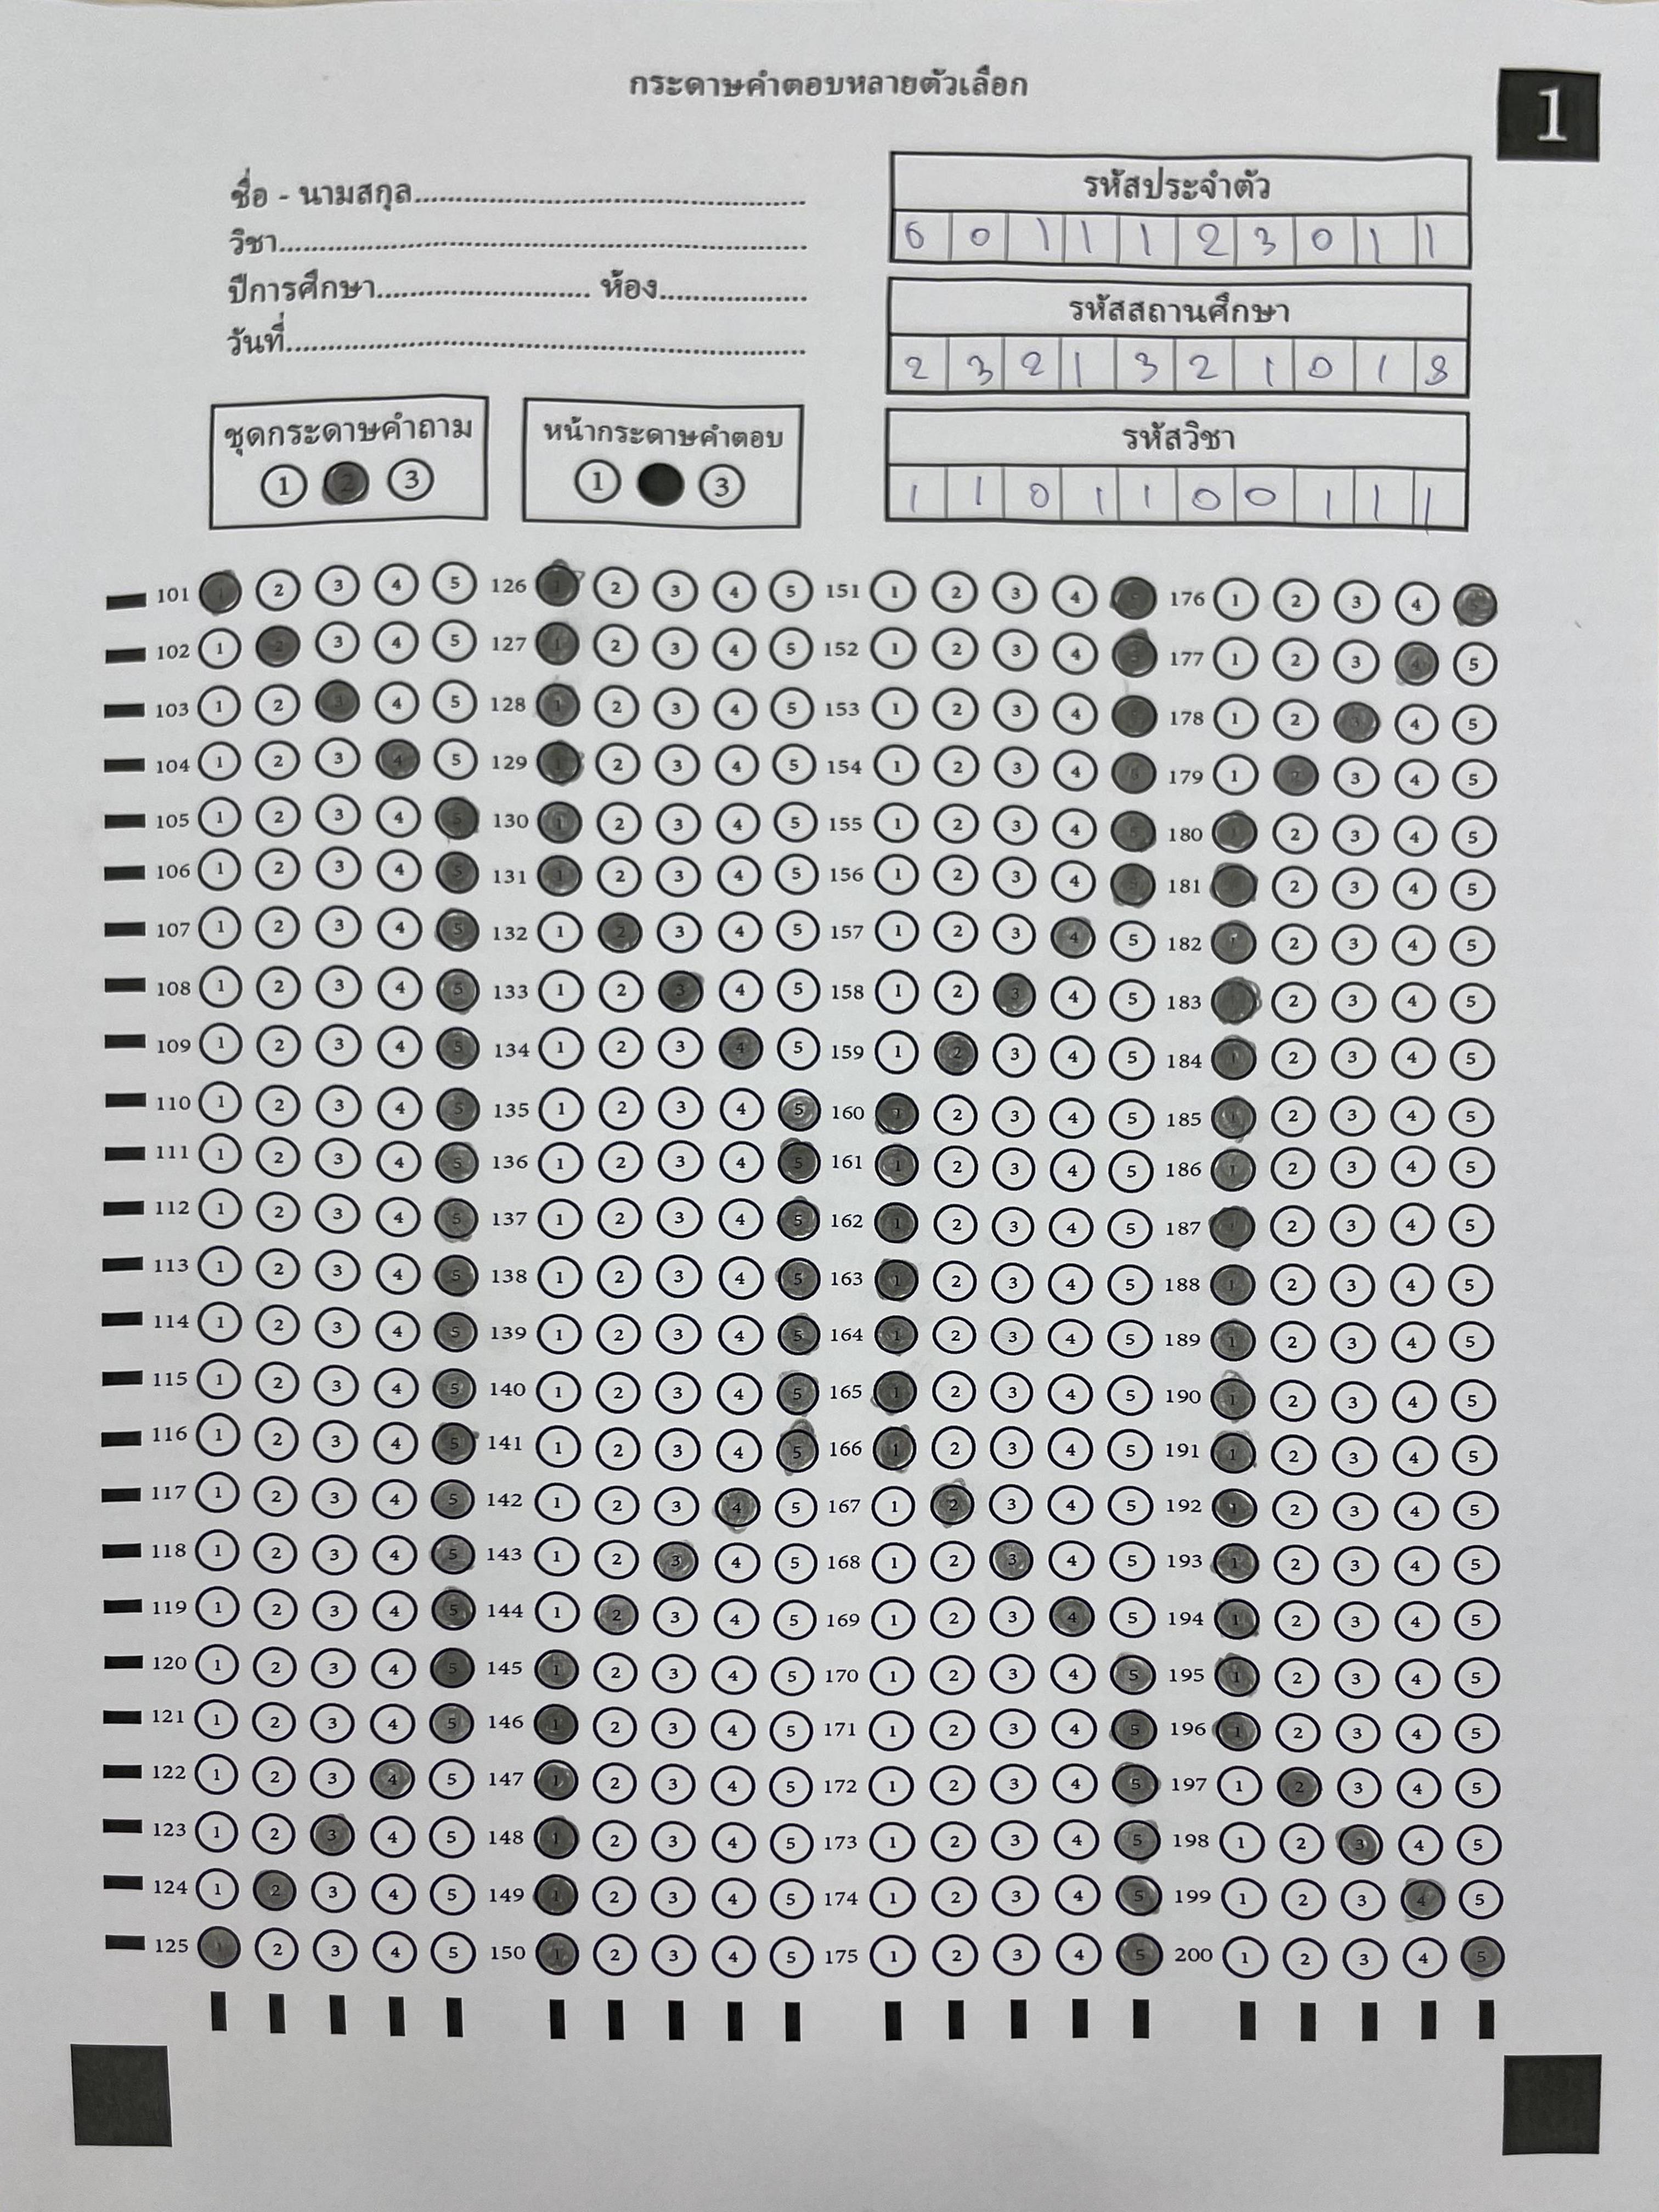 กระดาษคำตอบหลายตัวเลือก
1
ชื่อ - นามสกุล
วิชา
ปีการศึกษา ห้อง
วันที่
รหัสประจำตัว
6 0 1 1 1 2 3 0 1 1
รหัสสถานศึกษา
2 3 2 1 3 2 1 0 1 8
รหัสวิชา
1 1 0 1 1 0 0 1 1 1
ชุดกระดาษคำถาม
1 2 3
หน้ากระดาษคำตอบ
1 3
101 1 2 3 4 5 126 1 2 3 4 5 151 1 2 3 4 5 176 1 2 3 4 5
102 1 2 3 4 5 127 1 2 3 4 5 152 1 2 3 4 5 177 1 2 3 4 5
103 1 2 3 4 5 128 1 2 3 4 5 153 1 2 3 4 5 178 1 2 3 4 5
104 1 2 3 4 5 129 1 2 3 4 5 154 1 2 3 4 5 179 1 2 3 4 5
105 1 2 3 4 5 130 1 2 3 4 5 155 1 2 3 4 5 180 1 2 3 4 5
106 1 2 3 4 5 131 1 2 3 4 5 156 1 2 3 4 5 181 1 2 3 4 5
107 1 2 3 4 5 132 1 2 3 4 5 157 1 2 3 4 5 182 1 2 3 4 5
108 1 2 3 4 5 133 1 2 3 4 5 158 1 2 3 4 5 183 1 2 3 4 5
109 1 2 3 4 5 134 1 2 3 4 5 159 1 2 3 4 5 184 1 2 3 4 5
110 1 2 3 4 5 135 1 2 3 4 5 160 1 2 3 4 5 185 1 2 3 4 5
111 1 2 3 4 5 136 1 2 3 4 5 161 1 2 3 4 5 186 1 2 3 4 5
112 1 2 3 4 5 137 1 2 3 4 5 162 1 2 3 4 5 187 1 2 3 4 5
113 1 2 3 4 5 138 1 2 3 4 5 163 1 2 3 4 5 188 1 2 3 4 5
114 1 2 3 4 5 139 1 2 3 4 5 164 1 2 3 4 5 189 1 2 3 4 5
115 1 2 3 4 5 140 1 2 3 4 5 165 1 2 3 4 5 190 1 2 3 4 5
116 1 2 3 4 5 141 1 2 3 4 5 166 1 2 3 4 5 191 1 2 3 4 5
117 1 2 3 4 5 142 1 2 3 4 5 167 1 2 3 4 5 192 1 2 3 4 5
118 1 2 3 4 5 143 1 2 3 4 5 168 1 2 3 4 5 193 1 2 3 4 5
119 1 2 3 4 5 144 1 2 3 4 5 169 1 2 3 4 5 194 1 2 3 4 5
120 1 2 3 4 5 145 1 2 3 4 5 170 1 2 3 4 5 195 1 2 3 4 5
121 1 2 3 4 5 146 1 2 3 4 5 171 1 2 3 4 5 196 1 2 3 4 5
122 1 2 3 4 5 147 1 2 3 4 5 172 1 2 3 4 5 197 1 2 3 4 5
123 1 2 3 4 5 148 1 2 3 4 5 173 1 2 3 4 5 198 1 2 3 4 5
124 1 2 3 4 5 149 1 2 3 4 5 174 1 2 3 4 5 199 1 2 3 4 5
125 1 2 3 4 5 150 1 2 3 4 5 175 1 2 3 4 5 200 1 2 3 4 5